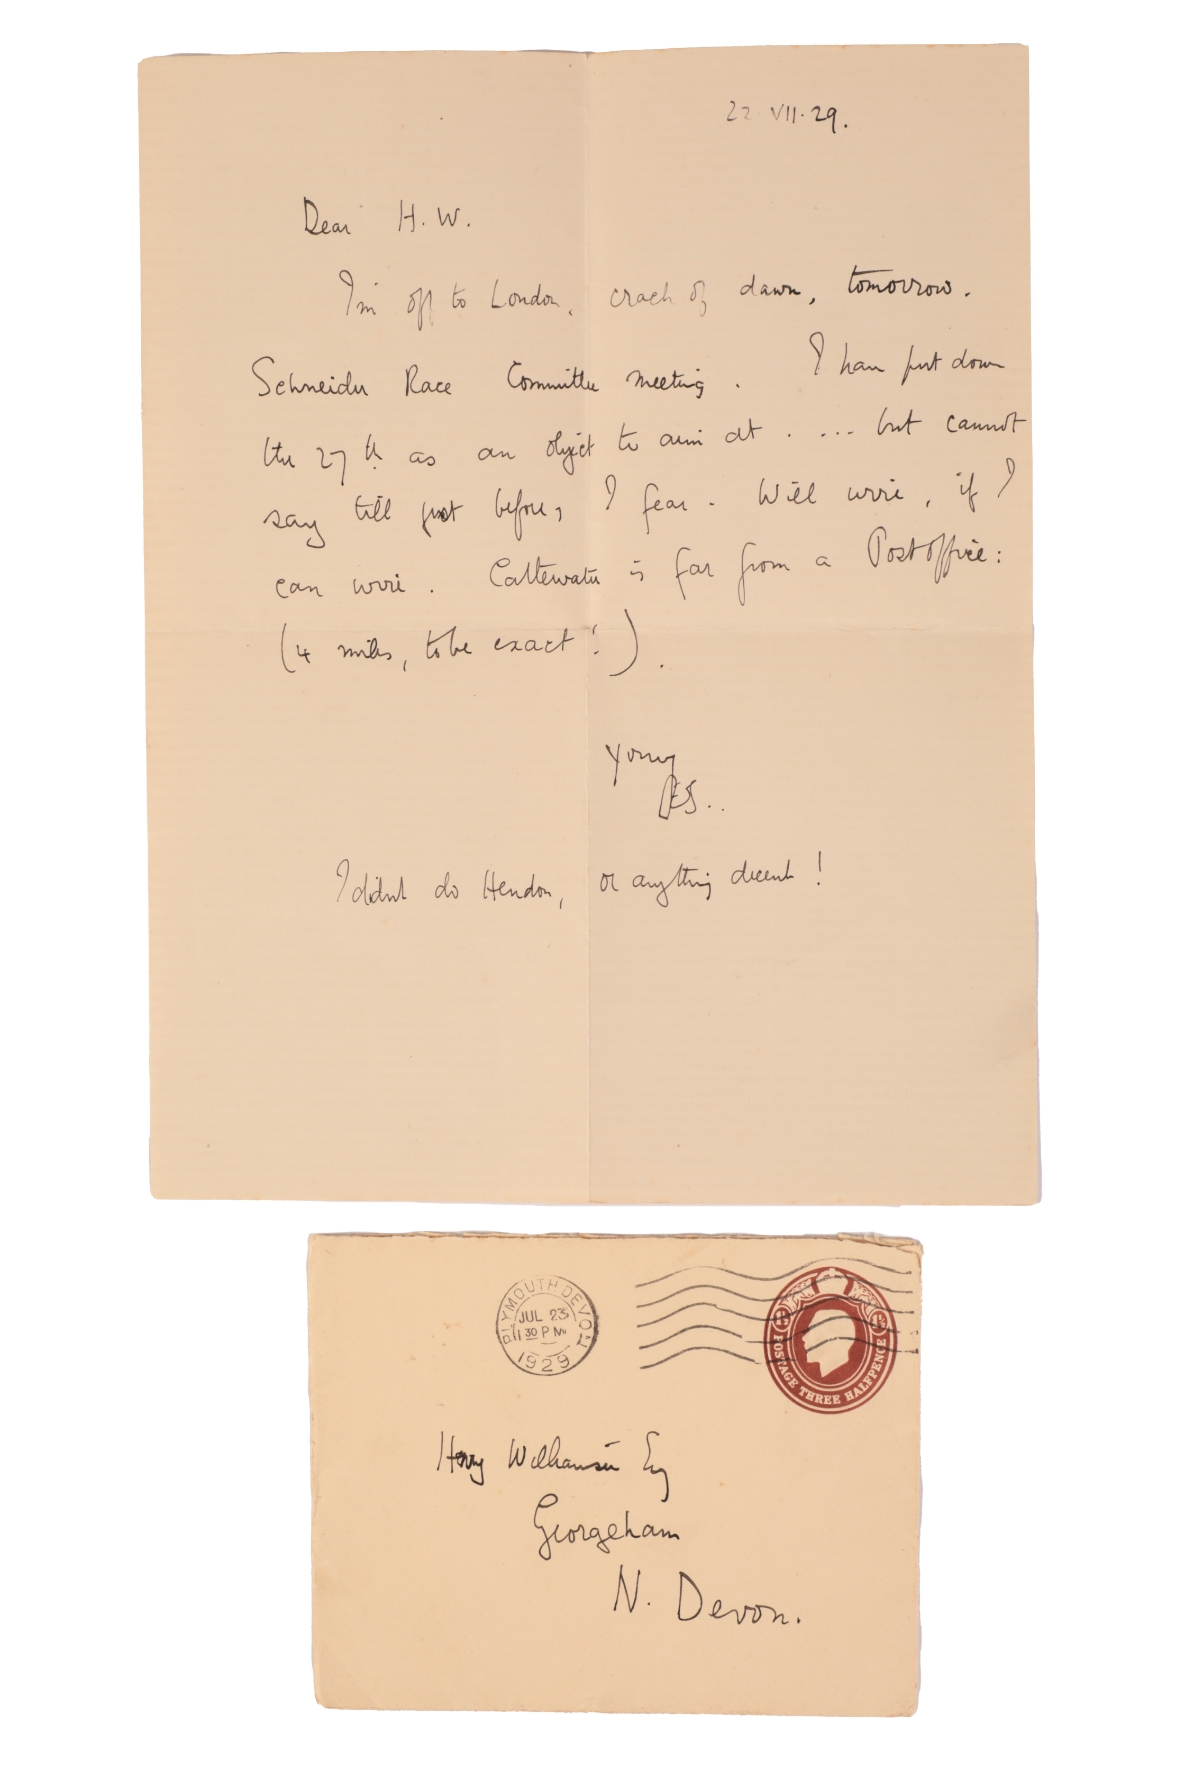 22 VII. 29.
Dear H. W.
I'm off to London, crack of dawn, tomorrow.
Schneider Race Committee meeting. I have put down
the 27th as an object to aim at . ... but cannot
say till just before, I fear. Will wire, if I
can wire. Cattewater is far from a Post office:
(4 miles, to be exact!).
Yours
TES..
I didn't do Hendon, or anything decent!
PLYMOUTH DEVON
JUL 23
11 30 PM
1929
POSTAGE THREE HALFPENCE
Henry Williamson Esq
Georgeham
N. Devon.